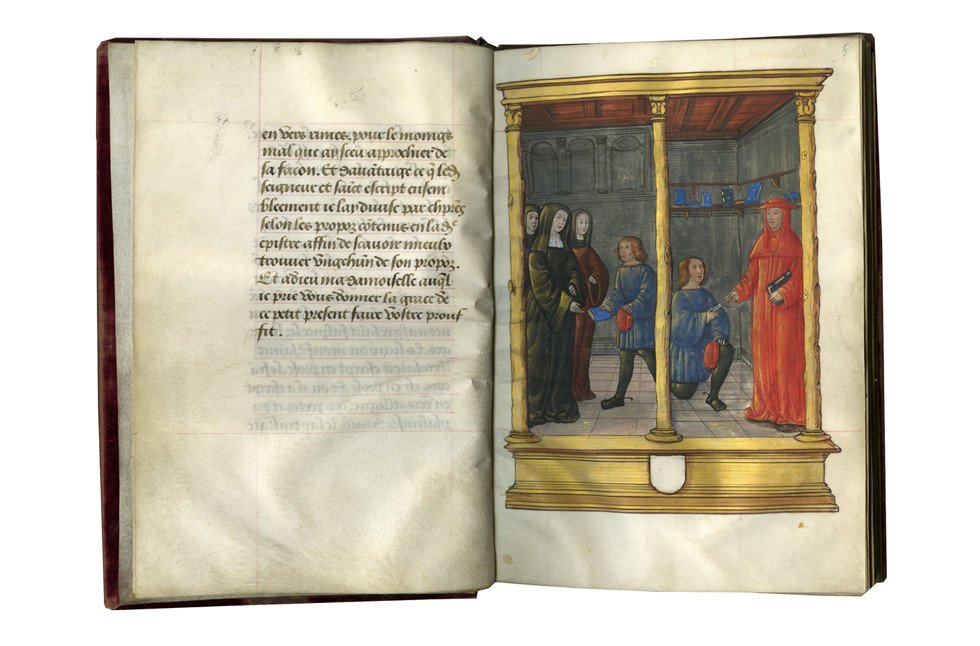 en vers rimes, pour le moings
mal que ay sceu approchier de
sa facon. Et dauātaige ce q̄ led̄
seigneur et saīct escript ensem
bleement ie lay diuise par chp̄res
selon les propoz cōtenus en lad̄e
epistre affin de scauoir mieulx
trouuer vng chūn de son propoz.
Et adieu madamoiselle auql̄
ie prie vous donner la grace de
ce petit present faire vostre prouf
fit.
5